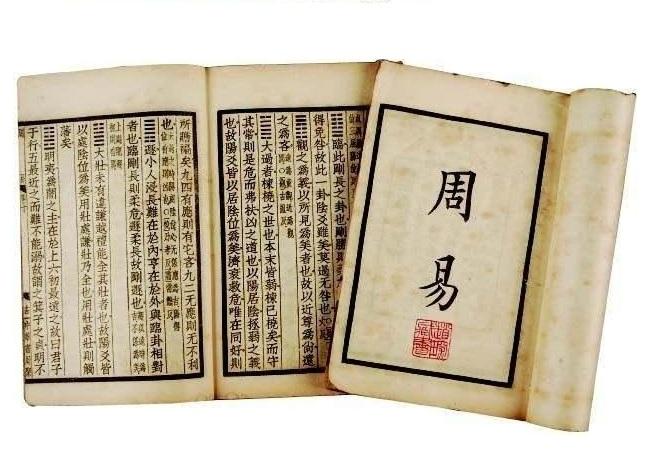 周易
䷒臨此剛長之一卦也剛勝則
得免咎故此一卦陰爻雖美莫過无咎也
䷓觀之爲義以所見爲美者也故以近尊爲尚遠
之爲吝
䷛大過者棟橈之世也本末皆弱棟已橈矣而守
其常則是危而弗扶凶之道也以陽居陰拯弱之義
也故陽爻皆以居陰位爲美濟衰救危唯在同好則
所贍褊矣九四有應則有它吝九二无應則无不利
也
䷠遯小人浸長難在於內亨在於外與臨卦相對
者也臨剛長則柔危遯柔長故剛遯也
䷡大壯未有違謙越禮能全其壯者也故陽爻皆
以處陰位爲美用壯處謙壯乃全也用壯處壯則觸
藩矣
䷣明夷爲闇之主在於上六初最遠之故曰君子
于行五最近之而難不能溺故謂之箕子之貞明不